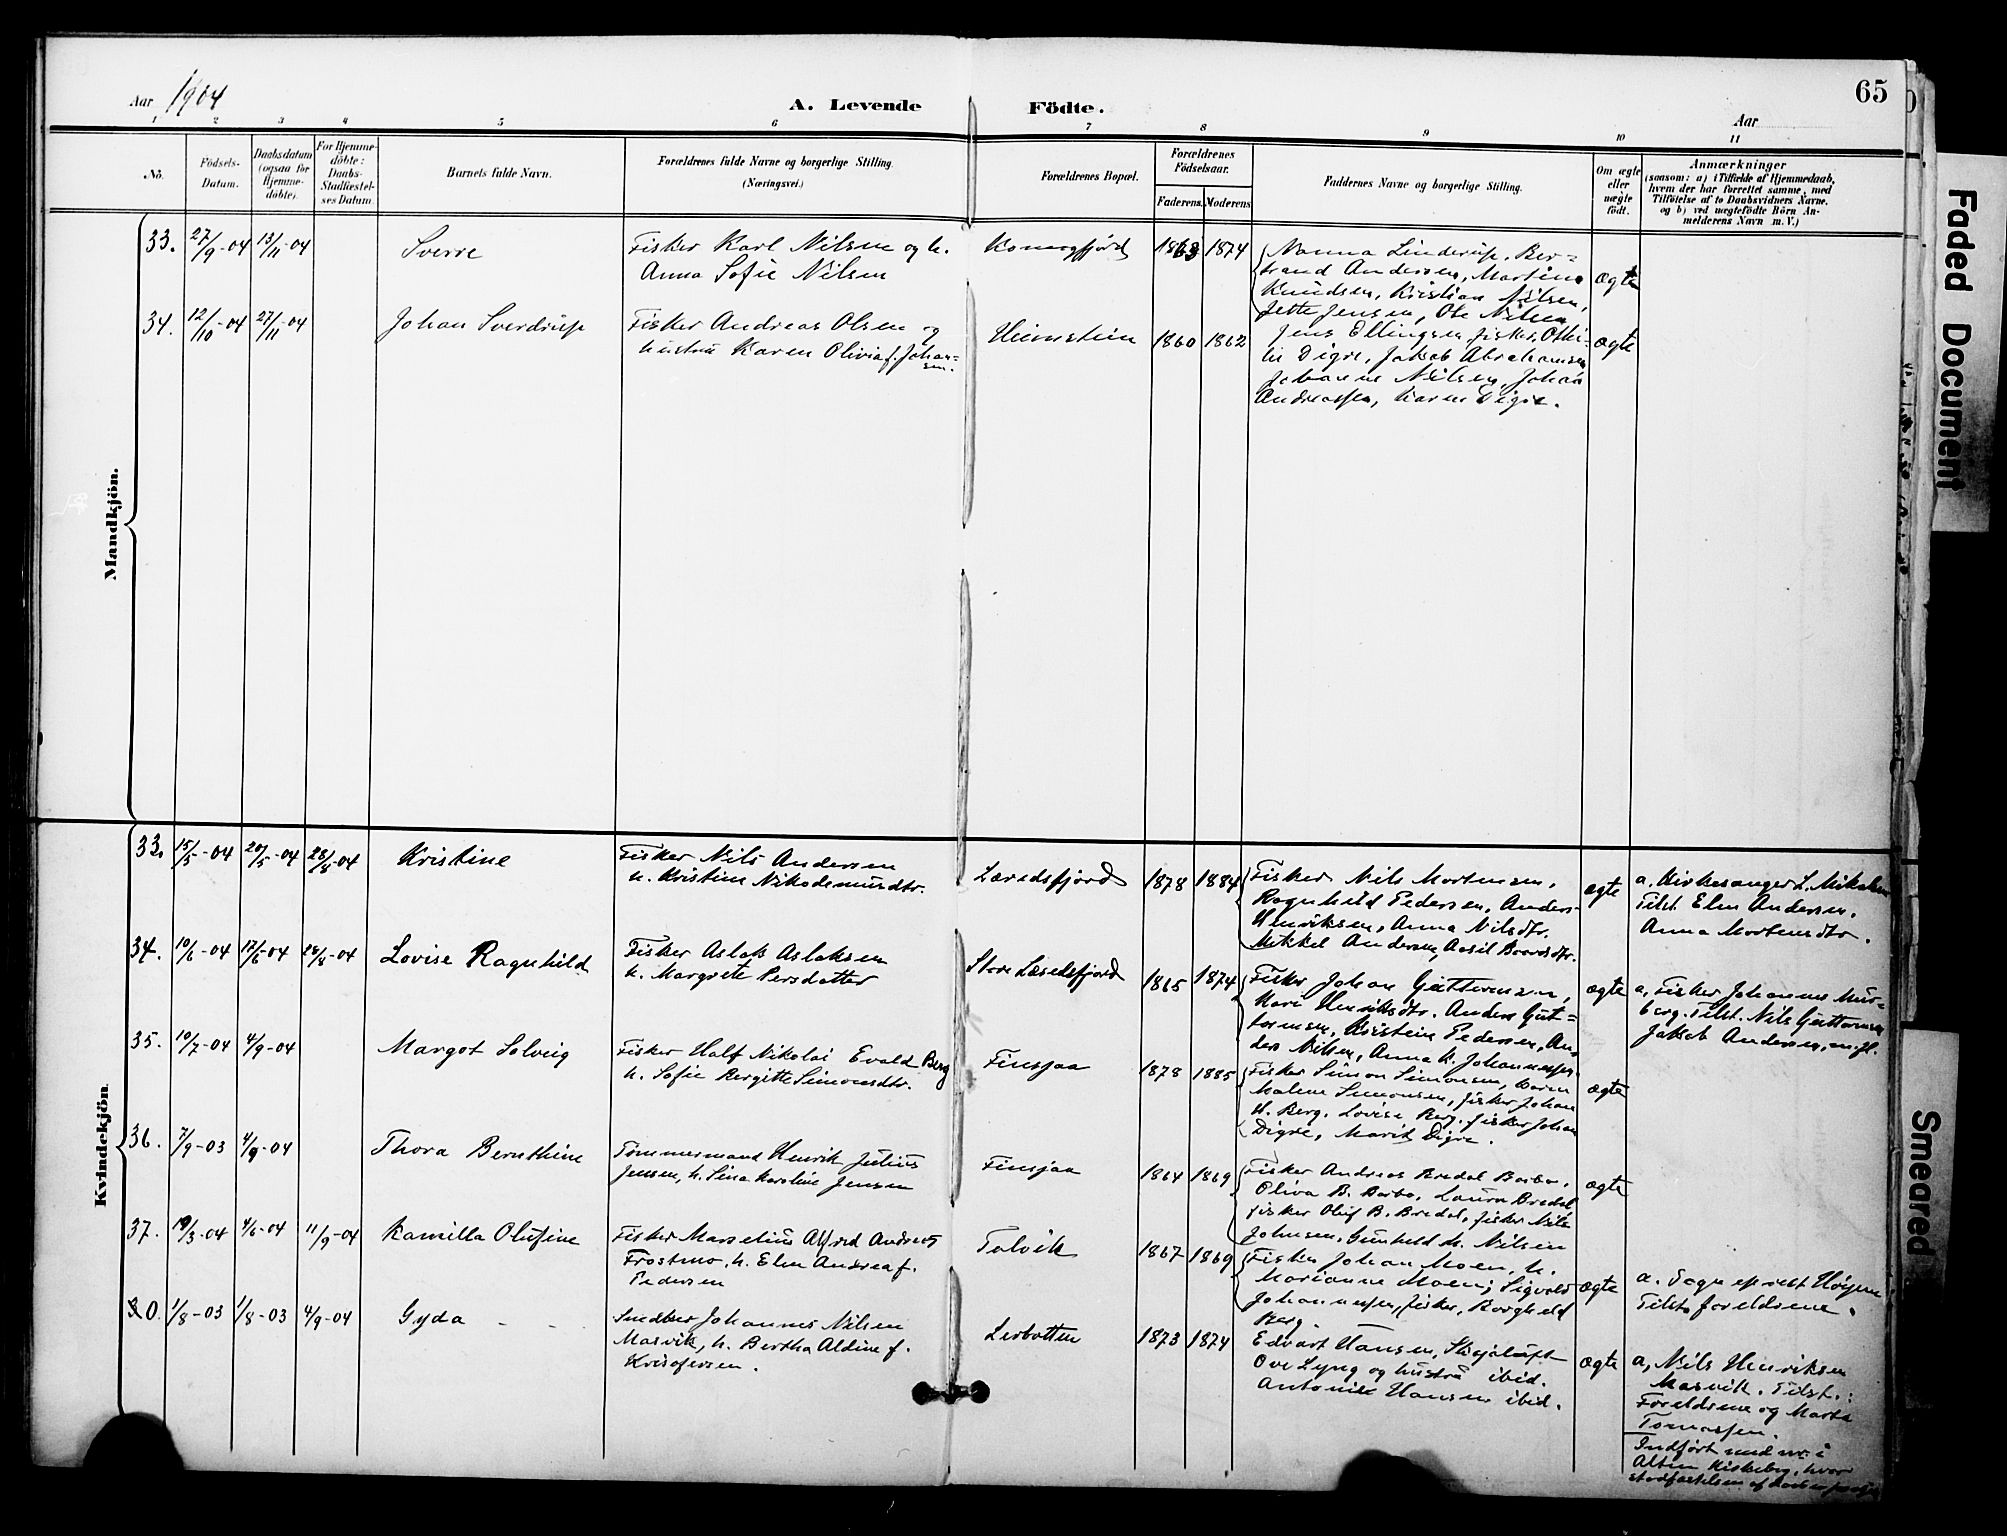 Aar 1904
A. Levende Födte.
65
Aar
1 2 3 4 5 6 7 8 9 10 11
No.
Födsels-
Datum.
Daabsdatum
(ogsaa for
Hjemme-
döbte).
For Hjemme-
döbte:
Daabs-
Stadfæstel-
ses Datum.
Barnets fulde Navn.
Forældrenes fulde Navne og borgerlige Stilling.
(Næringsvei.)
Forældrenes Bopæl.
Forældrenes
Födselsaar.
Faderens. Moderens.
Faddernes Navne og borgerlige Stilling.
Om ægte
eller
uægte
födt.
Anmærkninger
(saasom: a) i Tilfælde af Hjemmedaab,
hvem der har forrettet samme, med
Tilföielse af to Daabsvidners Navne.
og b) ved uægtefödte Börn An-
melderens Navn m. V.)
Mandkjön.
33. 27/9-04 13/11-04
Sverre
Fisker Karl Nilsen og h.
Anna Sofie Nilsen
Komagfjord
1863 1874
Nanna Linderup, Ber-
trand Andersen, Martine
Knudsen, Kristian Nilsen,
Jette Jensen, Ole Nilsen
ægte
34. 12/10-04 27/11-04
Johan Sverdrup
Fisker Andreas Olsen og
hustru Karen Olivia f. Johan-
sen.
Heimstein
1860 1862
Jens Ellingsen fisker, Othi-
lie Digre, Jakob Abrahamsen
Johanne Nilsen, Johan
Andreassen, Karen Digre.
ægte
Kvindekjön.
33. 15/5-04 20/5-04 28/8-04
Kristine
Fisker Nils Andersen
h. Kristine Nikodemusdtr.
Lærredsfjord
1878 1884
Fisker Nils Mortensen,
Ragnhild Pedersen, Anders
Henriksen, Anna Nilsdtr.
Mikkel Andersen, Aasil Baardsdtr.
ægte
a. Kirkesanger L. Mikalsen
Tilst. Elen Andersen.
Anna Mortensdtr.
34. 10/6-04 12/6-04 28/8-04
Lovise Ragnhild
Fisker Aslak Aslaksen
h. Margrete Persdatter
Store Læredsfjord
1865 1874
Fisker Johan Guttormsen,
Kari Henriksdtr. Anders Gut-
tormsen, Kristine Pedersen, An-
ders Nilsen, Anna h. Johannessen
ægte
a, Fisker Johannes Mur-
berg. Tilst. Nils Guttormsen
Jakob Andersen, m. fl.
35. 10/7-04 4/9-04
Margot Solveig
Fisker Half Nikolai Evald Berg
h. Sofie Bergitte Simonsdtr.
Finsjaa
1878 1885
Fisker Simon Simonsen, Karen
Malene Simonsen, fisker Johan
H. Berg, Lovise Berg, fisker Johan
Digre, Marit Digre.
ægte
36. 7/9-03 4/9-04
Thora Bernthine
Tömmermand Henrik Julius
Jensen, h. Sina Karoline Jensen
Finsjaa
1864 1869
Fisker Andreas Bredal Barbo.
Oliva B. Barbo, Laura Bredal,
fisker Oluf B. Bredal, fisker Nils
Johnsen, Gunhild M. Nilsen
ægte
37. 19/3-04 4/6-04 11/9-04
Kamilla Olufine
Fisker Marselius Alfred Andreas
Frostmo, h. Elen Andrea f.
Pedersen
Talvik
1867 1869
Fisker Johan Moen, h.
Marianne Moen; Sigvald
Johannessen, fisker, Borghild
Berg.
ægte
a. Sogneprest Høyem
Tilst. foreldrene.
30. 1/8-03 1/8-03 4/9-04
Gyda
Smedber Johannes Nilsen
Masvik, h. Bertha Aldine f.
Kristofersen.
Lerbotten
1873 1874
Edvart Hansen, Skojaluft
Ove Lyng og hustru ibid.
Antonise Hansen ibid.
ægte
a, Nils Henriksen
Masvik. Tilst.:
Foreldrene og Marta
Tomassen.
Indført med nr. i
Alten Kirkebog, hvor
stadfæstelsen af daaben
Faded Document
Smeared